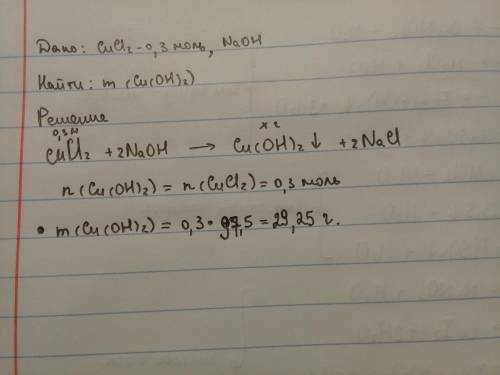 Дано: CuCl2 - 0,3 моль, NaOH
Найти: m (Cu(OH)2)
Решение
0,3 м x г
CuCl2 + 2NaOH → Cu(OH)2↓ + 2NaCl
n (Cu(OH)2) = n (CuCl2) = 0,3 моль
• m (Cu(OH)2) = 0,3 · 97,5 = 29,25 г.